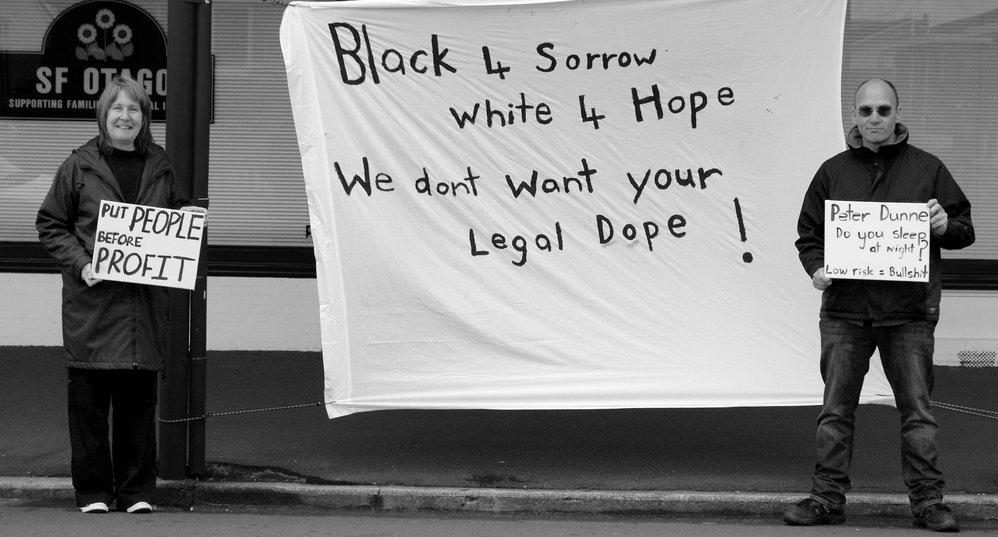 SF OTAGO
SUPPORTING FAMILI
PUT PEOPLE
BEFORE
PROFIT
Black 4 Sorrow
White 4 Hope
We dont want your
Legal Dope !
Peter Dunne
Do you sleep
at Night?
Low risk = Bullshit